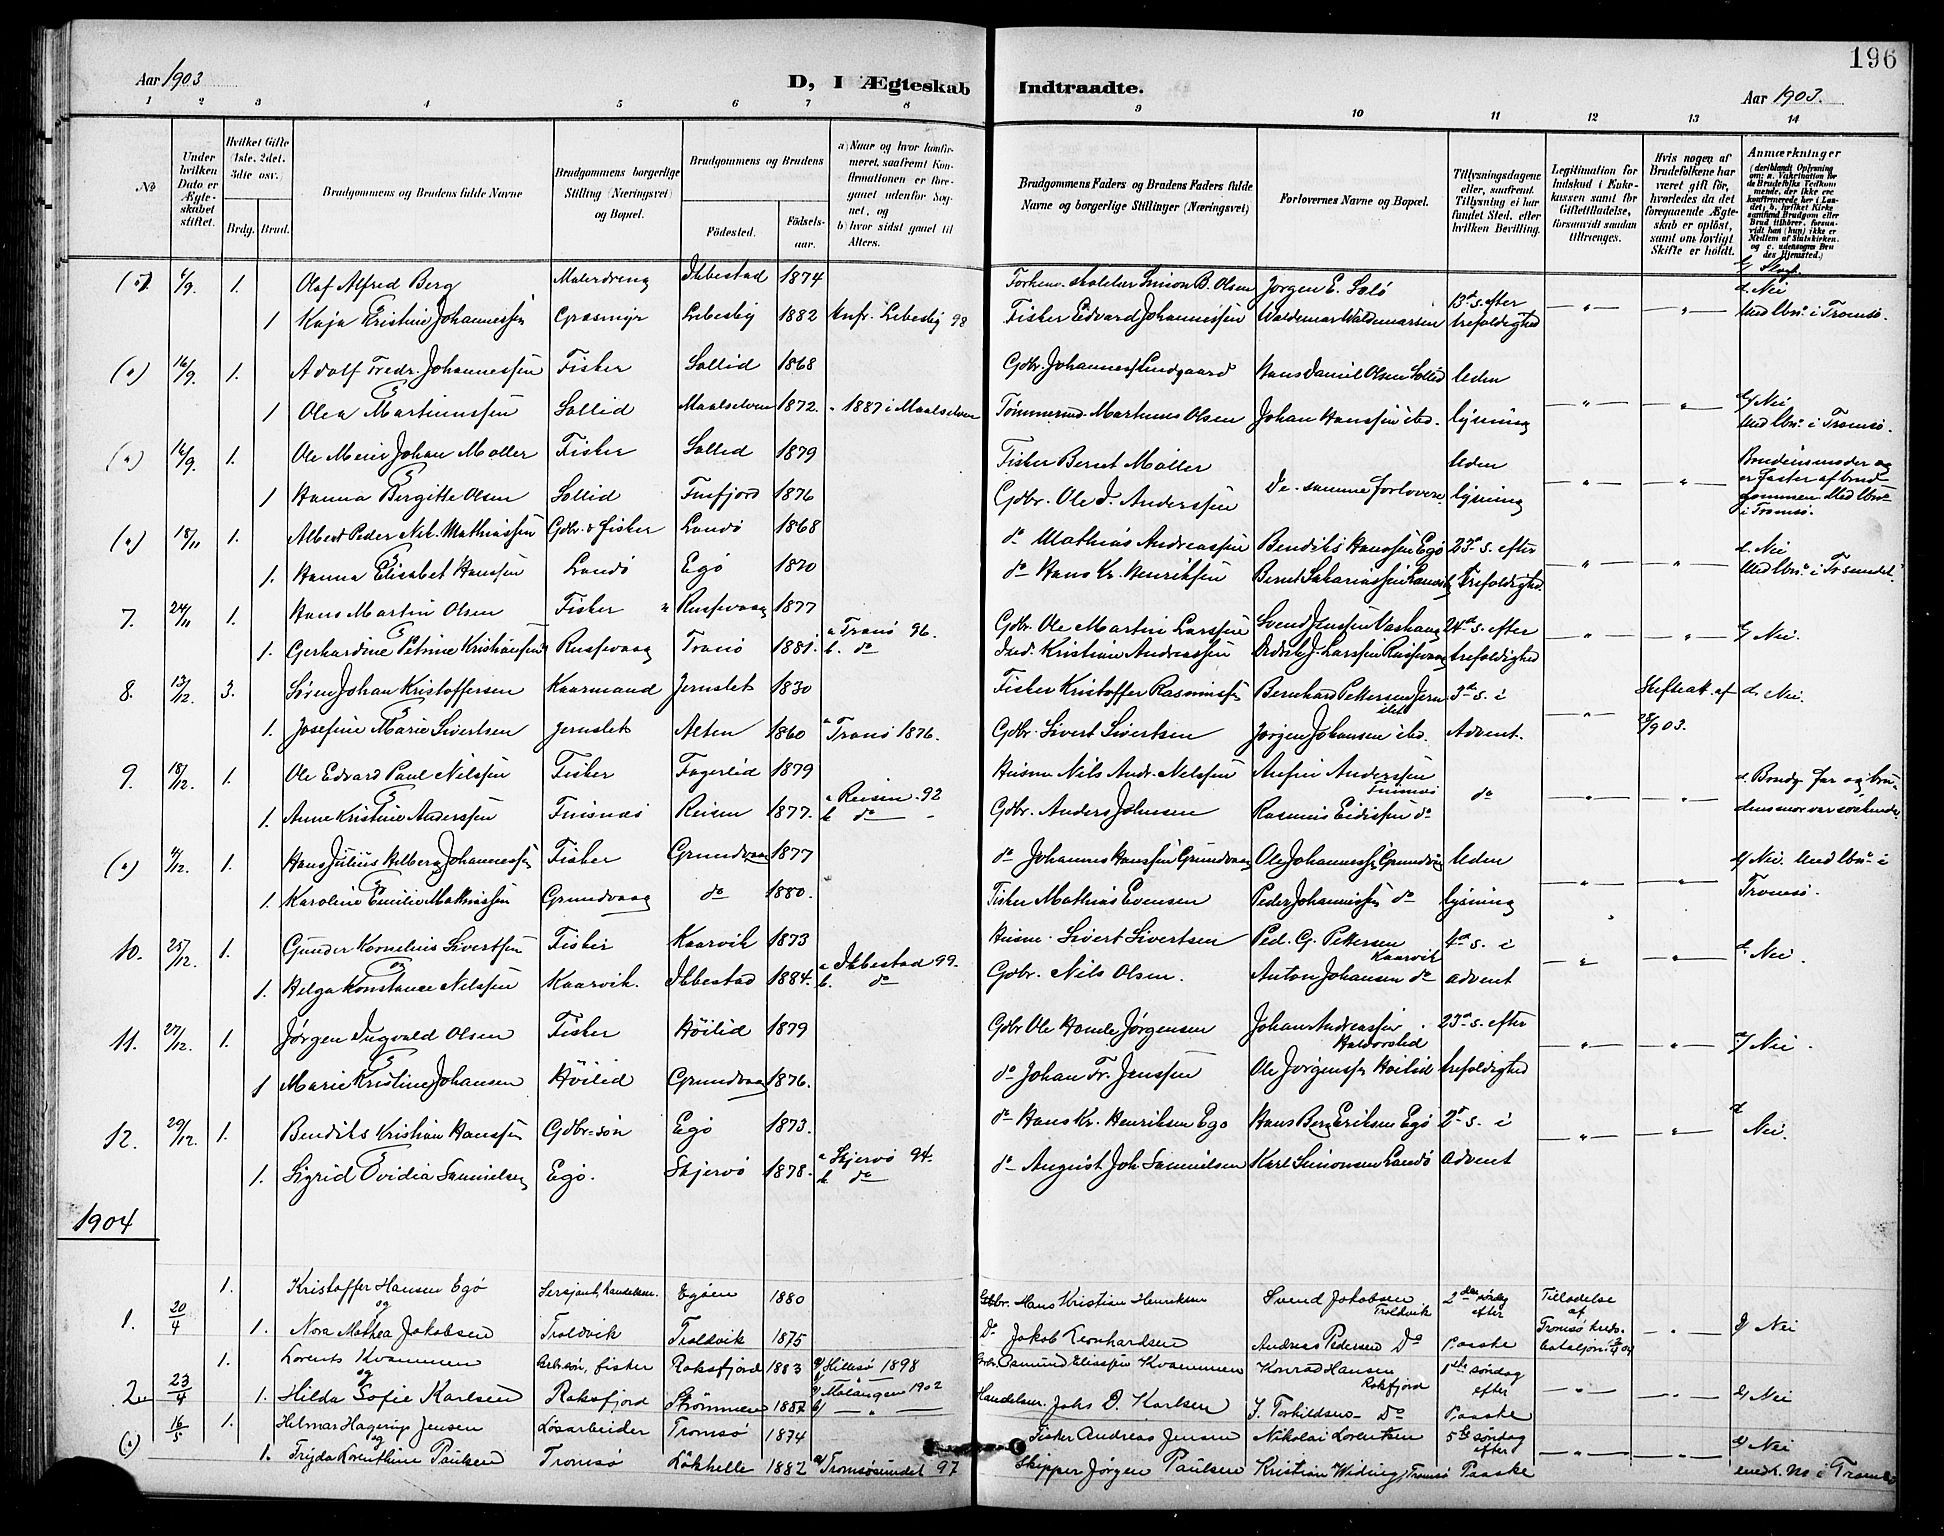 196
Aar 1903
D, I Ægteskab Indtraadte.
Aar 1903.
1 2 3 4 5 6 7 8 9 10 11 12 13 14
No
Under hvilken Dato er Ægteskabet stiftet.
Hvilket Gifte (1ste, 2det, 3die osv.)
Brdg. Brud.
Brudgommens og Brudens fulde Navne
Brudgommens borgerlige Stilling (Næringsvei) og Bopæl.
Brudgommens og Brudens
Fødested.
Fødselsaar.
a) Naar og hvor konfirmeret, saafremt Konfirmationen er foregaaet udenfor Sognet, og
b) hvor sidst gaaet til Alters.
Brudgommens Faders og Brudens Faders fulde Navne og borgerlige Stillinger (Næringsvei)
Forlovernes Navne og Bopæl.
Tillysningsdagene eller, saafremt Tillysning ei har fundet Sted, efter hvilken Bevilling.
Legitimation for Indskud i Enkekassen samt for Giftetilladelse, forsaavidt saadan tiltrænges.
Hvis nogen af Brudefolkene har været gift før, hvorledes da det foregaaende Ægteskab er opløst, samt om lovligt Skifte er holdt.
Anmærkninger
6/9. 1. Olaf Alfred Berg Malerdreng Ibbestad 1874 Simon B. Olsen Jørgen E. Solø
1 Kaja Kristine Johannessen Græsmyr Lebesby 1882 Lebesby 98 Fisker Edvard Johannessen Waldemar Waldemarsen 13de s. efter trefoldighed d. Nei Med lbn. i Tromsø.
(") 16/9. 1. Adolf Fredr. Johannessen Fisker Sollid 1868 Gdbr. Johannes Lindgaard Hans Daniel Olsen Sollid Uden
1 Olea Martinussen Sollid Maalselven 1872. " 1887 i Maalselven Martinus Olsen Johan Hanssen ibd. lysning d/ Nei Med lbn. i Tromsø.
(") 16/9. 1. Ole Meier Johan Møller Fisker Sollid 1879 Fisker Bernt Møller Uden
1 Hanna Bergitte Olsen Sollid Finfjord 1876 Gdbr. Ole J. Anderssen De samme forlovere lysning Brudens moder og er faster af brudgommen Med lbn. i Tromsø.
(") 18/11 1. Albert Peder Nik. Mathiassen Gdbr. & fisker Landø 1868 do Mathias Andreassen Bendiks Hanssen Egø 23de s. efter
1. Hanna Elisabet Hanssen Landø Egø 1870 do Hans Kr. Henriksen Bernt Sakariassen Trefoldighed. d. Nei
7. 24/11 1. Hans Martin Olsen Fisker Russevaag 1877 Gdbr. Ole Martin Larssen Svend Jenssen 24de s. efter
1. Gerhardine Petrine Kristiansen Russevaag Tranø 1881. a Tranø 96. b. do Ind. Kristian Andreassen J. Larssen Russevaag trefoldighed d/ Nei.
8. 13/12. 3. Søren Johan Kristoffersen Kaarmand Jernslet 1830 Fisker Kristoffer Rasmussen Bernhard Pettersen Jernslet 3de s. i Skifteatt. af d. Nei.
1. Josefine Marie Sivertsen Jernslet Alten 1860 a Tranø 1876. Gdbr. Sivert Sivertsen Jørgen Johansen ibd. Advent. 28/9 03.
9. 18/12. 1. Ole Edvard Paul Nilssen Fisker Fagerlid 1879 Husm. Nils Andr. Nilssen Anfin Anderssen Finsnes do
1. Anne Kristine Anderssen Finsnæs Reisen 1877. a Reisen 92 b do Gdbr. Anders Johnsen Rasmus Eidissen do d. Brudg. far og brudens mor var søskende
(") 4/12. 1. Hans Julius Hilberg Johannessen Fisker Grundvaag 1877 do Johannes Hanssen Grundvaag Ole Johannessen Grundvaag Uden d/ Nei. Med lbn. i
1. Karoline Emilie Mathiassen Grundvaag do 1880. Fisker Mathias Evensen Peder Johannessen do lysning Tromsø.
10. 25/12. 1. Gunder Kornelius Sivertsen Fisker Kaarvik 1873 Husm. Sivert Sivertsen Ped. G. Pettersen Kaarvik 4de s. i d. Nei.
og
1. Helga Konstance Nilssen Kaarvik. Ibbestad 1884. a Ibbestad 99. b. do Gdbr. Nils Olsen. Anton Johansen do advent
11. 27/12. 1. Jørgen Ingvald Olsen Fisker Høilid 1879 Gdbr Ole Jørgensen Johan Andreassen Haldorslid 23de s. efter
1 Marie Kristine Johansen Høilid Grundvaag 1876. do Johan Fr. Jenssen Ole Jørgenssen Høilid trefoldighed d/ Nei.
12. 29/12. 1. Bendiks Kristian Hanssen Gdbr.søn Egø 1873. do Hans Kr. Henriksen Egø Hans Berg Eriksen Egø 2den s. i d Nei.
1. Sigrid Ovidia Samuelsen Egø. Skjervø 1878. a Skjervø 94. b do do August Joh. Samuelsen Karl Simonsen Landø advent
1904
1. 20/4 1. Kristoffer Hansen Egø Sersjant, handelsm. Egøen 1880 Gdbr. Hans Kristian Henriksen Svend Jakobsen Troldvik 2den søndag efter Tilladelse af
og
1. Nora Mathea Jakobsen Troldvik Troldvik 1875 Do Jakob Leonhardsen Andreas Pedersen Do Paaske Tromsø kredsbataljon d/ Nei
2. 23/4 1. Lorents Kvammen fisker Roksfjord 1883 a/ Hillesø 1898 Gdbr. Asmund Elissen Kvammen Konrad Hansen Roksfjord 1ste søndag efter
og
1. Hilda Sofie Karlsen Roksfjord Strømmen 1887 a/ Malangen 1902 b/ " Handelsm. Johs D. Karlsen J. Torkildsen Do Paaske d/ Nei
(") 16/5 1. Hilmar Hagerup Jensen Løsarbeider Tromsø 1874 Fisker Andreas Jensen Nikolai Lorentsen 5te søndag efter
og
1. Frijda Lorentine Paulsen Tromsø Løkhelle 1882 a/ Tromsøsundet 97 Skipper Jørgen Paulsen Kristian Widing, Tromsø Paaske d/ Nei med l. No i Tromsø